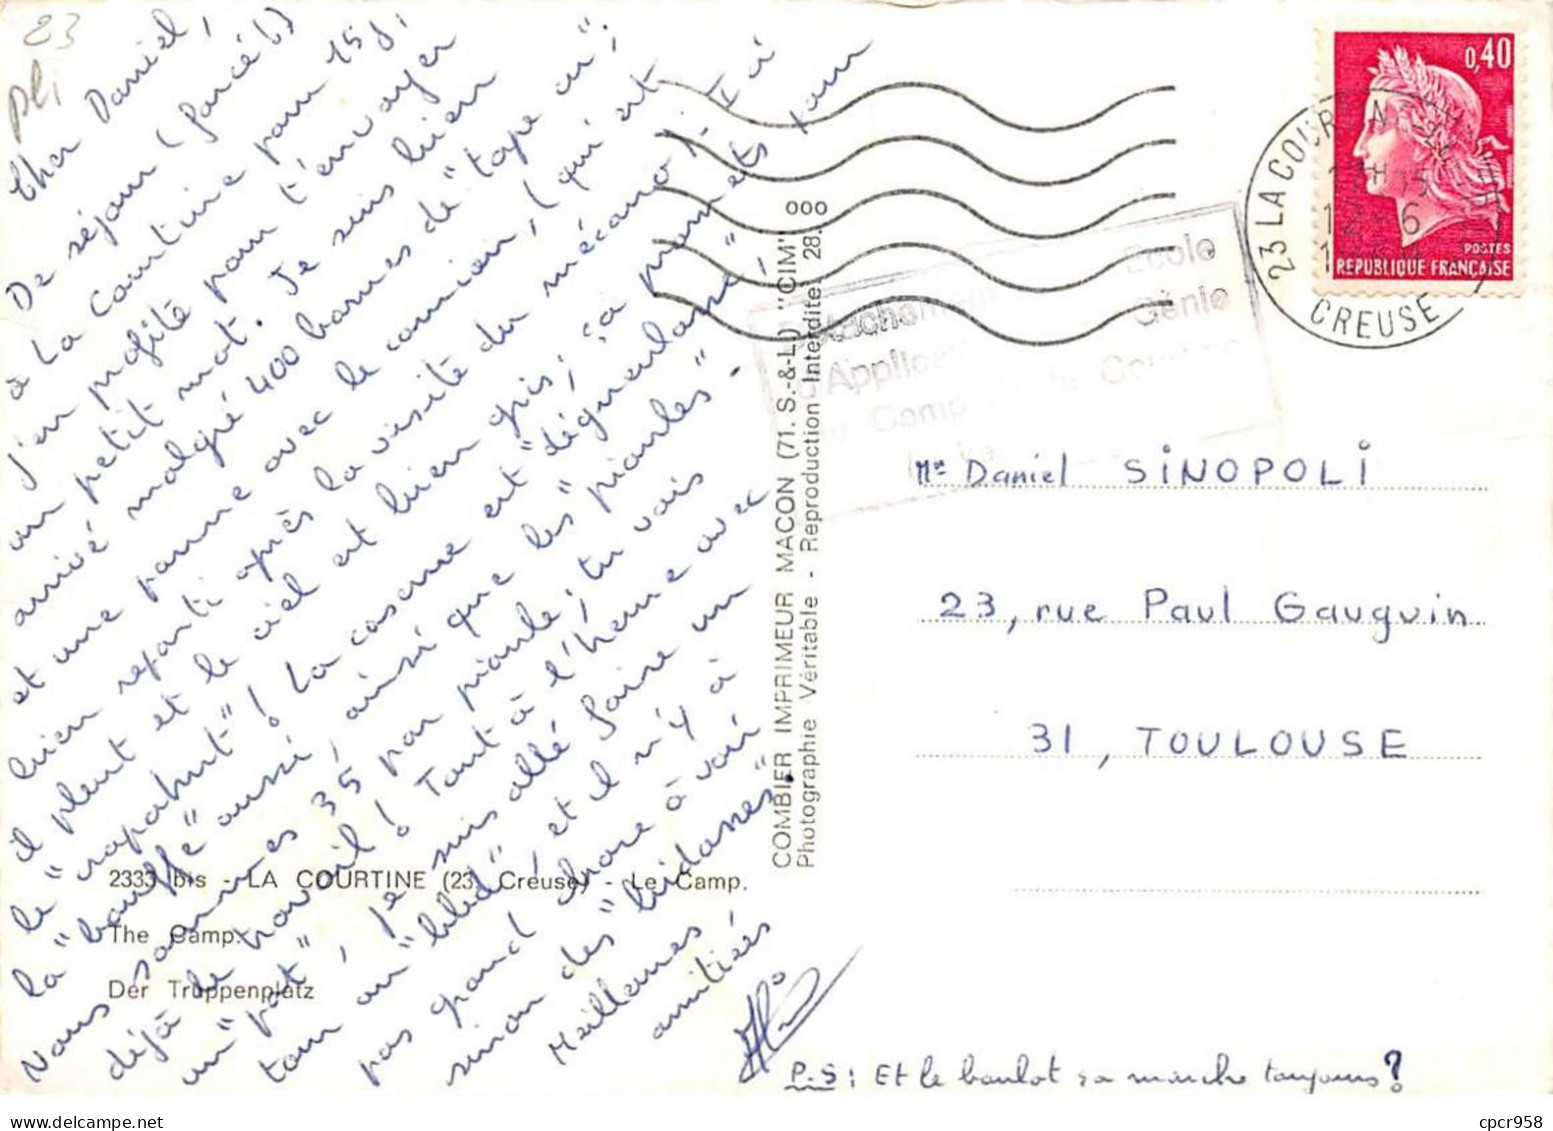 23
Pli
Cher Daniel,
De séjour (forcé!)
à La Courtine pour 15 j,
j'en profite pour t'envoyer
un petit mot. Je suis bien
arrivé malgré 400 bornes de "tape cu";
et une panne avec le camion, (qui est
bien reparti après la visite du mécano); II à
il pleut et le ciel est bien gris; ça promets pour
le "crapahut"! La caserne est "dégueulasse",
la "bouffe" aussi, ainsi que les "piaules".
Nous sommes 35 par piaule; tu vois
déjà le travail! Tout à l'heure avec
un "pot", je suis allé faire un
tour au "bled", et il n'y à
pas grand chose à voir
sinon des "bidasses".
Meilleures
amitiés
P.S: Et le boulot ça marche toujours?
2333 bis - LA COURTINE (23 Creuse) - Le Camp.
The Camp.
Der Truppenplatz
COMBIER IMPRIMEUR MACON (71. S.-&-L.) "CIM"
Photographie Véritable - Reproduction Interdite 28.
Détachement Ecole
d'Application Génie
Camp Courtine
0,40
POSTES
REPUBLIQUE FRANÇAISE
23 LA COURTINE
12 - 6
CREUSE
Mr Daniel SINOPOLI
23, rue Paul Gauguin
31, TOULOUSE
cpcr958